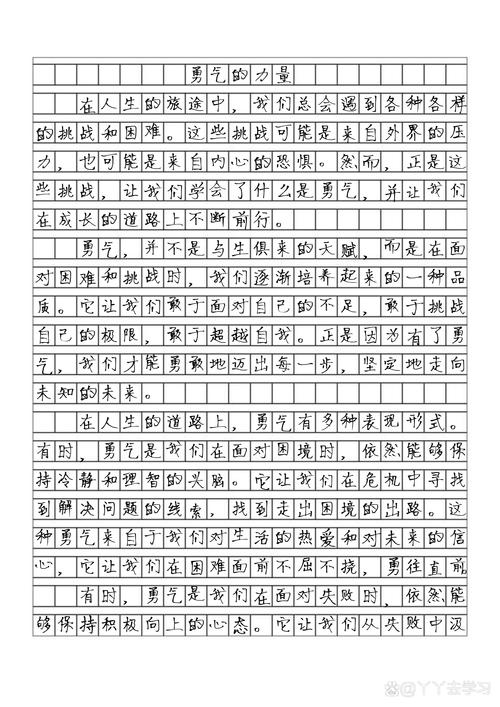 勇气的力量
在人生的旅途中，我们总会遇到各种各样
的挑战和困难。这些挑战可能是来自外界的压
力，也可能是来自内心的恐惧。然而，正是这
些挑战，让我们学会了什么是勇气，并让我们
在成长的道路上不断前行。
勇气，并不是与生俱来的天赋，而是在面
对困难和挑战时，我们逐渐培养起来的一种品
质。它让我们敢于面对自己的不足，敢于挑战
自己的极限，敢于超越自我。正是因为有了勇
气，我们才能勇敢地迈出每一步，坚定地走向
未知的未来。
在人生的道路上，勇气有多种表现形式。
有时，勇气是我们在面对困境时，依然能够保
持冷静和理智的头脑。它让我们在危机中寻找
到解决问题的线索，找到走出困境的出路。这
种勇气来自于我们对生活的热爱和对未来的信
心，它让我们在困难面前不屈不挠，勇往直前
有时，勇气是我们在面对失败时，依然能
够保持积极向上的心态。它让我们从失败中汲
@丫丫去学习